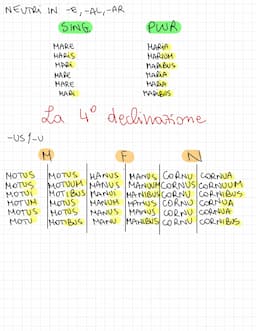 NEUTRI IN -E, -AL, -AR
SING PLUR
MARE MARIA
MARIS MARIUM
MARI MARIBUS
MARE MARIA
MARE MARIA
MARI MARIBUS
La 4° declinazione
-US/-U
M F N
MOTUS MOTUS MANUS MANUS CORNU CORNUA
MOTUS MOTUUM MANUS MANUUM CORNUS CORNUUM
MOTUI MOTIBUS MANUI MANIBUS CORNU CORNIBUS
MOTUM MOTUS MANUM MANUS CORNU CORNUA
MOTUS MOTUS MANUS MANUS CORNU CORNUA
MOTU MOTIBUS MANU MANIBUS CORNU CORNIBUS